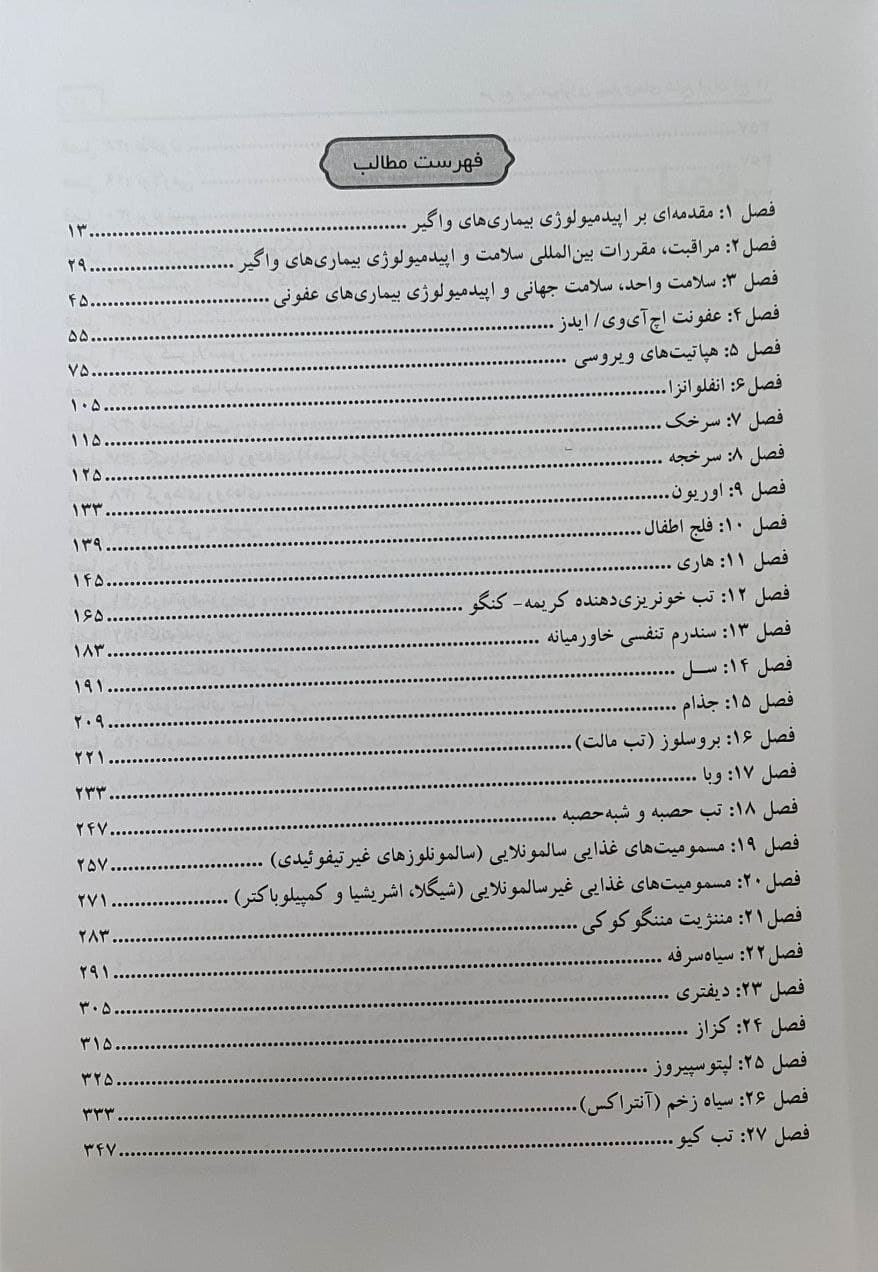 فهرست مطالب
فصل ۱: مقدمه‌ای بر اپیدمیولوژی بیماری‌های واگیر ........ ۱۳
فصل۲: مراقبت، مقررات بین‌المللی سلامت و اپیدمیولوژی بیماری‌های واگیر ........ ۲۹
فصل ۳: سلامت واحد، سلامت جهانی و اپیدمیولوژی بیماری‌های عفونی ........ ۴۵
فصل۴: عفونت اچ‌آی‌وی/ ایدز ........ ۵۵
فصل ۵: هپاتیت‌های ویروسی ........ ۷۵
فصل۶: انفلوانزا ........ ۱۰۵
فصل ۷: سرخک ........ ۱۱۵
فصل ۸: سرخجه ........ ۱۲۵
فصل ۹: اوریون ........ ۱۳۳
فصل ۱۰: فلج اطفال ........ ۱۳۹
فصل ۱۱: هاری ........ ۱۴۵
فصل ۱۲: تب خونریزی‌دهنده کریمه- کنگو ........ ۱۶۵
فصل ۱۳: سندرم تنفسی خاورمیانه ........ ۱۸۳
فصل ۱۴: سل ........ ۱۹۱
فصل ۱۵: جذام ........ ۲۰۹
فصل ۱۶: بروسلوز (تب مالت) ........ ۲۲۱
فصل ۱۷: وبا ........ ۲۳۳
فصل ۱۸: تب حصبه و شبه‌حصبه ........ ۲۴۷
فصل ۱۹: مسمومیت‌های غذایی سالمونلایی (سالمونلوزهای غیرتیفوئیدی) ........ ۲۵۷
فصل۲۰: مسمومیت‌های غذایی غیرسالمونلایی (شیگلا، اشریشیا و کمپیلوباکتر) ........ ۲۷۱
فصل۲۱: مننژیت مننگوکوکی ........ ۲۸۳
فصل۲۲: سیاه‌سرفه ........ ۲۹۱
فصل ۲۳: دیفتری ........ ۳۰۵
فصل ۲۴: کزاز ........ ۳۱۵
فصل ۲۵: لپتوسپیروز ........ ۳۲۵
فصل ۲۶: سیاه زخم (آنتراکس) ........ ۳۳۳
فصل ۲۷: تب کیو ........ ۳۴۷